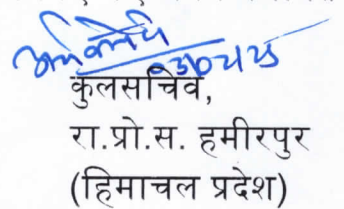 कुलसचिव,
रा.प्रो.स. हमीरपुर
(हिमाचल प्रदेश)